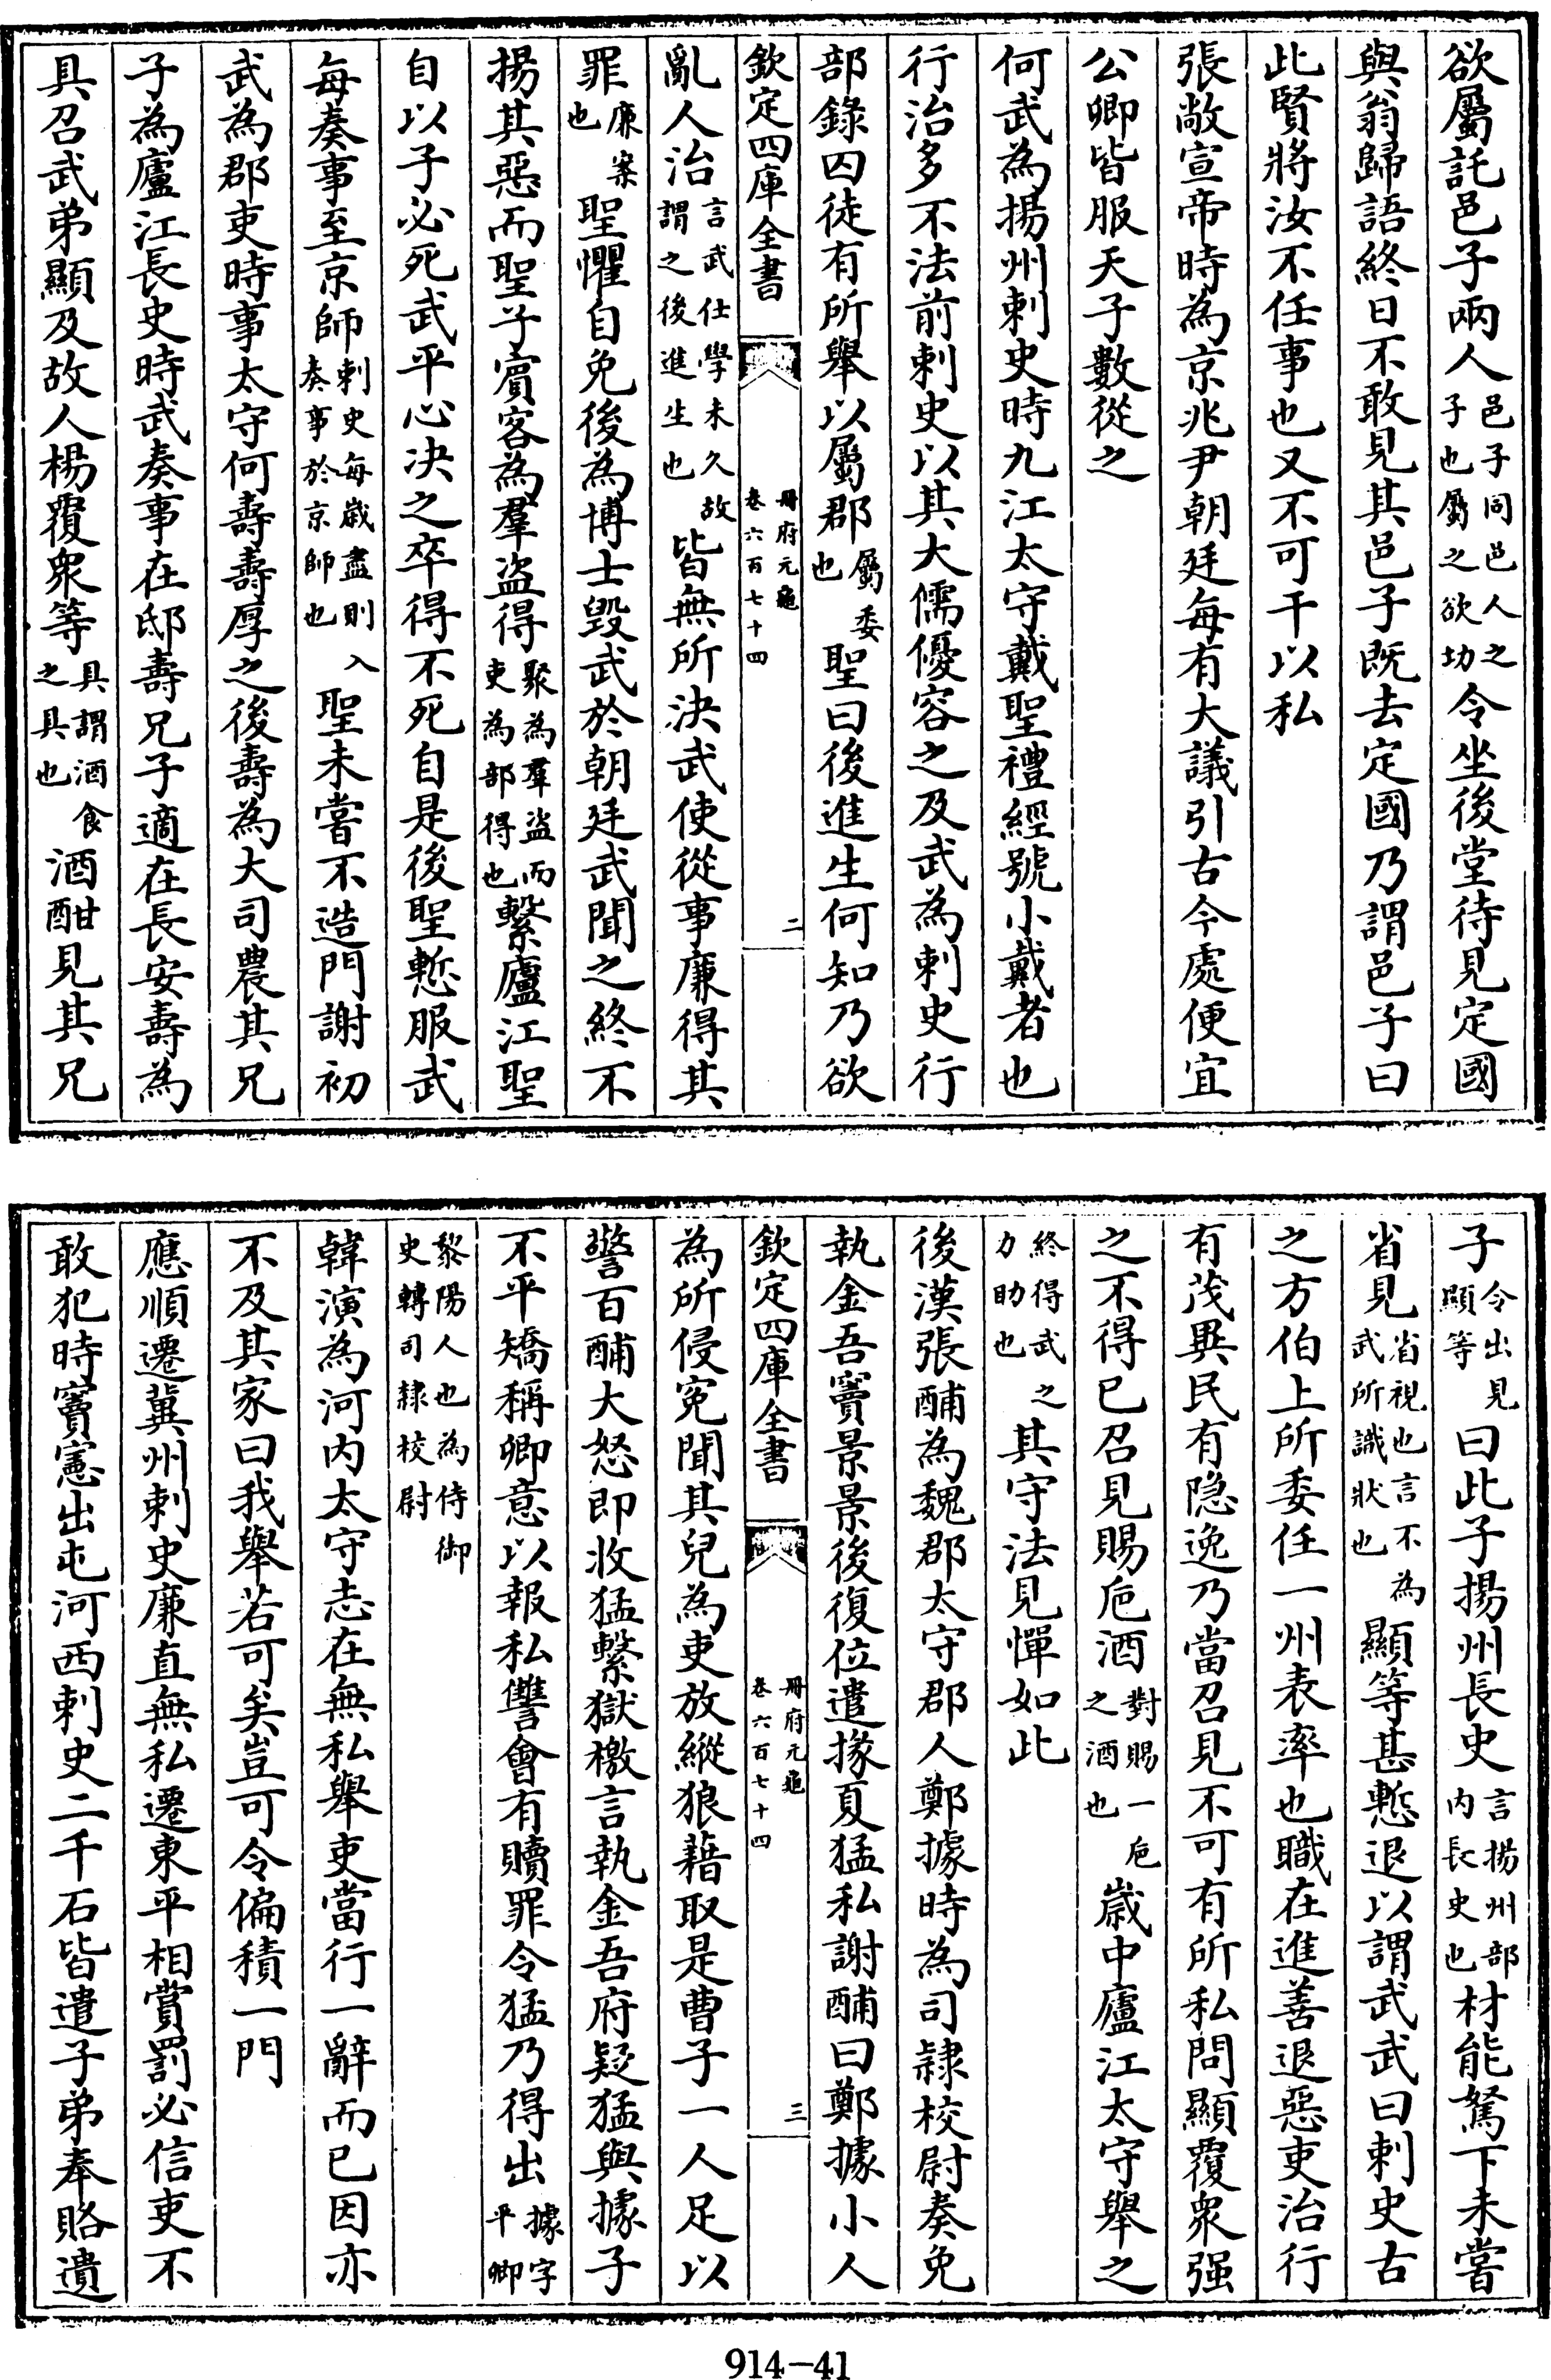 欲屬託邑子兩人邑子同邑人之子也屬之欲切令坐後堂待見定國
與翁歸語終日不敢見其邑子既去定國乃謂邑子曰
此賢將汝不任事也又不可干以私
張敞宣帝時為京兆尹朝廷每有大議引古今處便宜
公卿皆服天子數從之
何武為揚州刺史時九江太守戴聖禮經號小戴者也
行治多不法前刺史以其大儒優容之及武為刺史行
部錄囚徒有所舉以屬郡屬委也聖曰後進生何知乃欲
欽定四庫全書 冊府元龜卷六百七十四 二
亂人治言武仕學未久故謂之後進生也皆無所決武使從事廉得其
罪廉案也聖懼自免後為博士毀武於朝廷武聞之終不
揚其惡而聖子賔客為羣盜得聚為羣盜而吏為部得也繫廬江聖
自以子必死武平心决之卒得不死自是後聖慙服武
每奏事至京師刺史每歳盡則入奏事於京師也聖未嘗不造門謝初
武為郡吏時事太守何壽壽厚之後壽為大司農其兄
子為廬江長史時武奏事在邸壽兄子適在長安壽為
具召武弟顯及故人楊覆衆等具謂酒食之具也酒酣見其兄
子令出見顯等曰此子揚州長史言揚州部内長史也材能駑下未嘗
省見省視也言不為武所識狀也顯等甚慙退以謂武武曰刺史古
之方伯上所委任一州表率也職在進善退惡吏治行
有茂異民有隐逸乃當召見不可有所私問顯覆衆强
之不得已召見賜巵酒對賜一巵之酒也歳中廬江太守舉之
終得武之力助也其守法見憚如此
後漢張酺為魏郡太守郡人鄭據時為司隷校尉奏免
執金吾竇景景後復位遣掾夏猛私謝酺曰鄭據小人
欽定四庫全書 冊府元龜卷六百七十四 三
為所侵寃聞其兒為吏放縱狼藉取是曹子一人足以
警百酺大怒即收猛繫獄檄言執金吾府疑猛與據子
不平矯稱卿意以報私讐會有贖罪令猛乃得出據字平卿
黎陽人也為侍御史轉司隸校尉
韓演為河内太守志在無私舉吏當行一辭而已因亦
不及其家曰我舉若可矣豈可令偏積一門
應順遷冀州刺史廉直無私遷東平相賞罰必信吏不
敢犯時竇憲出屯河西刺史二千石皆遣子弟奉賂遺
914-41